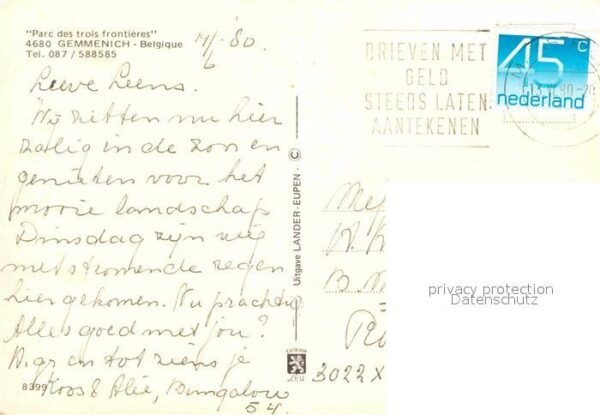 "Parc des trois frontières"
4680 GEMMENICH - Belgique
Tel. 087 / 588585
11/6 '80.
Lieve Leens.
Wij zitten nu hier
zalig in de zon en
genieten voor het
mooie landschap
Dinsdag zijn wij
met stromende regen
hier gekomen. Nu prachtig
Alles goed met jou?
H. gr en tot ziens je
Koos & Alie, Bungalow
54.
8399
Uitgave LANDER-EUPEN - ©
BRIEVEN MET
GELD
STEEDS LATEN
AANTEKENEN
45 c
nederland
3022 X
privacy protection
Datenschutz